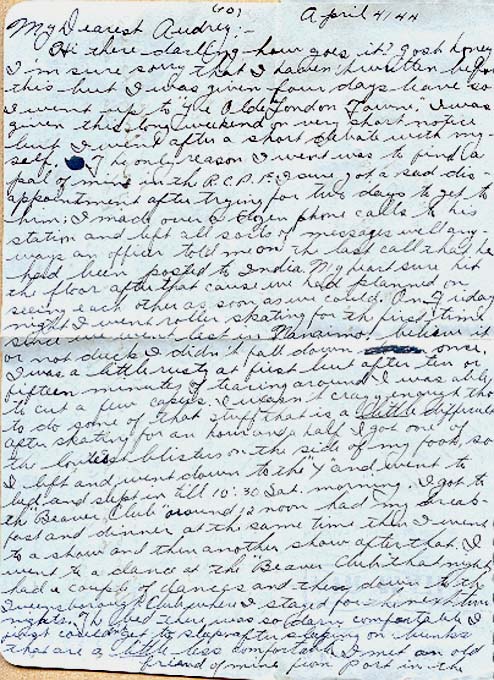 (60)
April 4/44
My Dearest Audrey:-
Hi there darling how goes it? Gosh honey
I'm sure sorry that I haven't written before
this but I was given four days leave so
I went up to "Ye Olde London Towne." I was
given this long weekend on very short notice
but I went after a short debate with my-
self. The only reason I went was to find a
pal of mine in the R.C.A.F. I sure got a sad dis-
appointment after trying for two days to get to
him; I made over a dozen phone calls to his
station and left all sorts of messages well any-
ways an officer told me on the last call that he
had been posted to India. My heart sure hit
the floor after that cause we had planned on
seein each other as soon as we could. On Friday
night I went roller skating for the first time
since we went last in Nanaimo, believe it
or not duck I didn't fall down once.
I was a little rusty at first but after ten or
fifteen minutes of tearing around I was able
to cut a few capers. I wasn't crazy enough tho
to do some of that stuff that is a little difficult
after skating for an hour and a half I got one of
the blisters on the side of my foot, so
I left and went down to the Y and went to
bed and slept in till 10:30 Sat. morning. I got to
the "Beaver Club" around 12 noon had my break-
fast and dinner at the same time then I went
to a show and then another show after that. I
went to a dance at the Beaver Club that night
had a couple of dances and then down to the
Queensborough Club where I stayed for the next two
nights. The bed there was so darn comfortable I
just couldn't get to sleep after sleeping on bunks
that are a little less comfortable. I met an old
friend of mine from Port in the